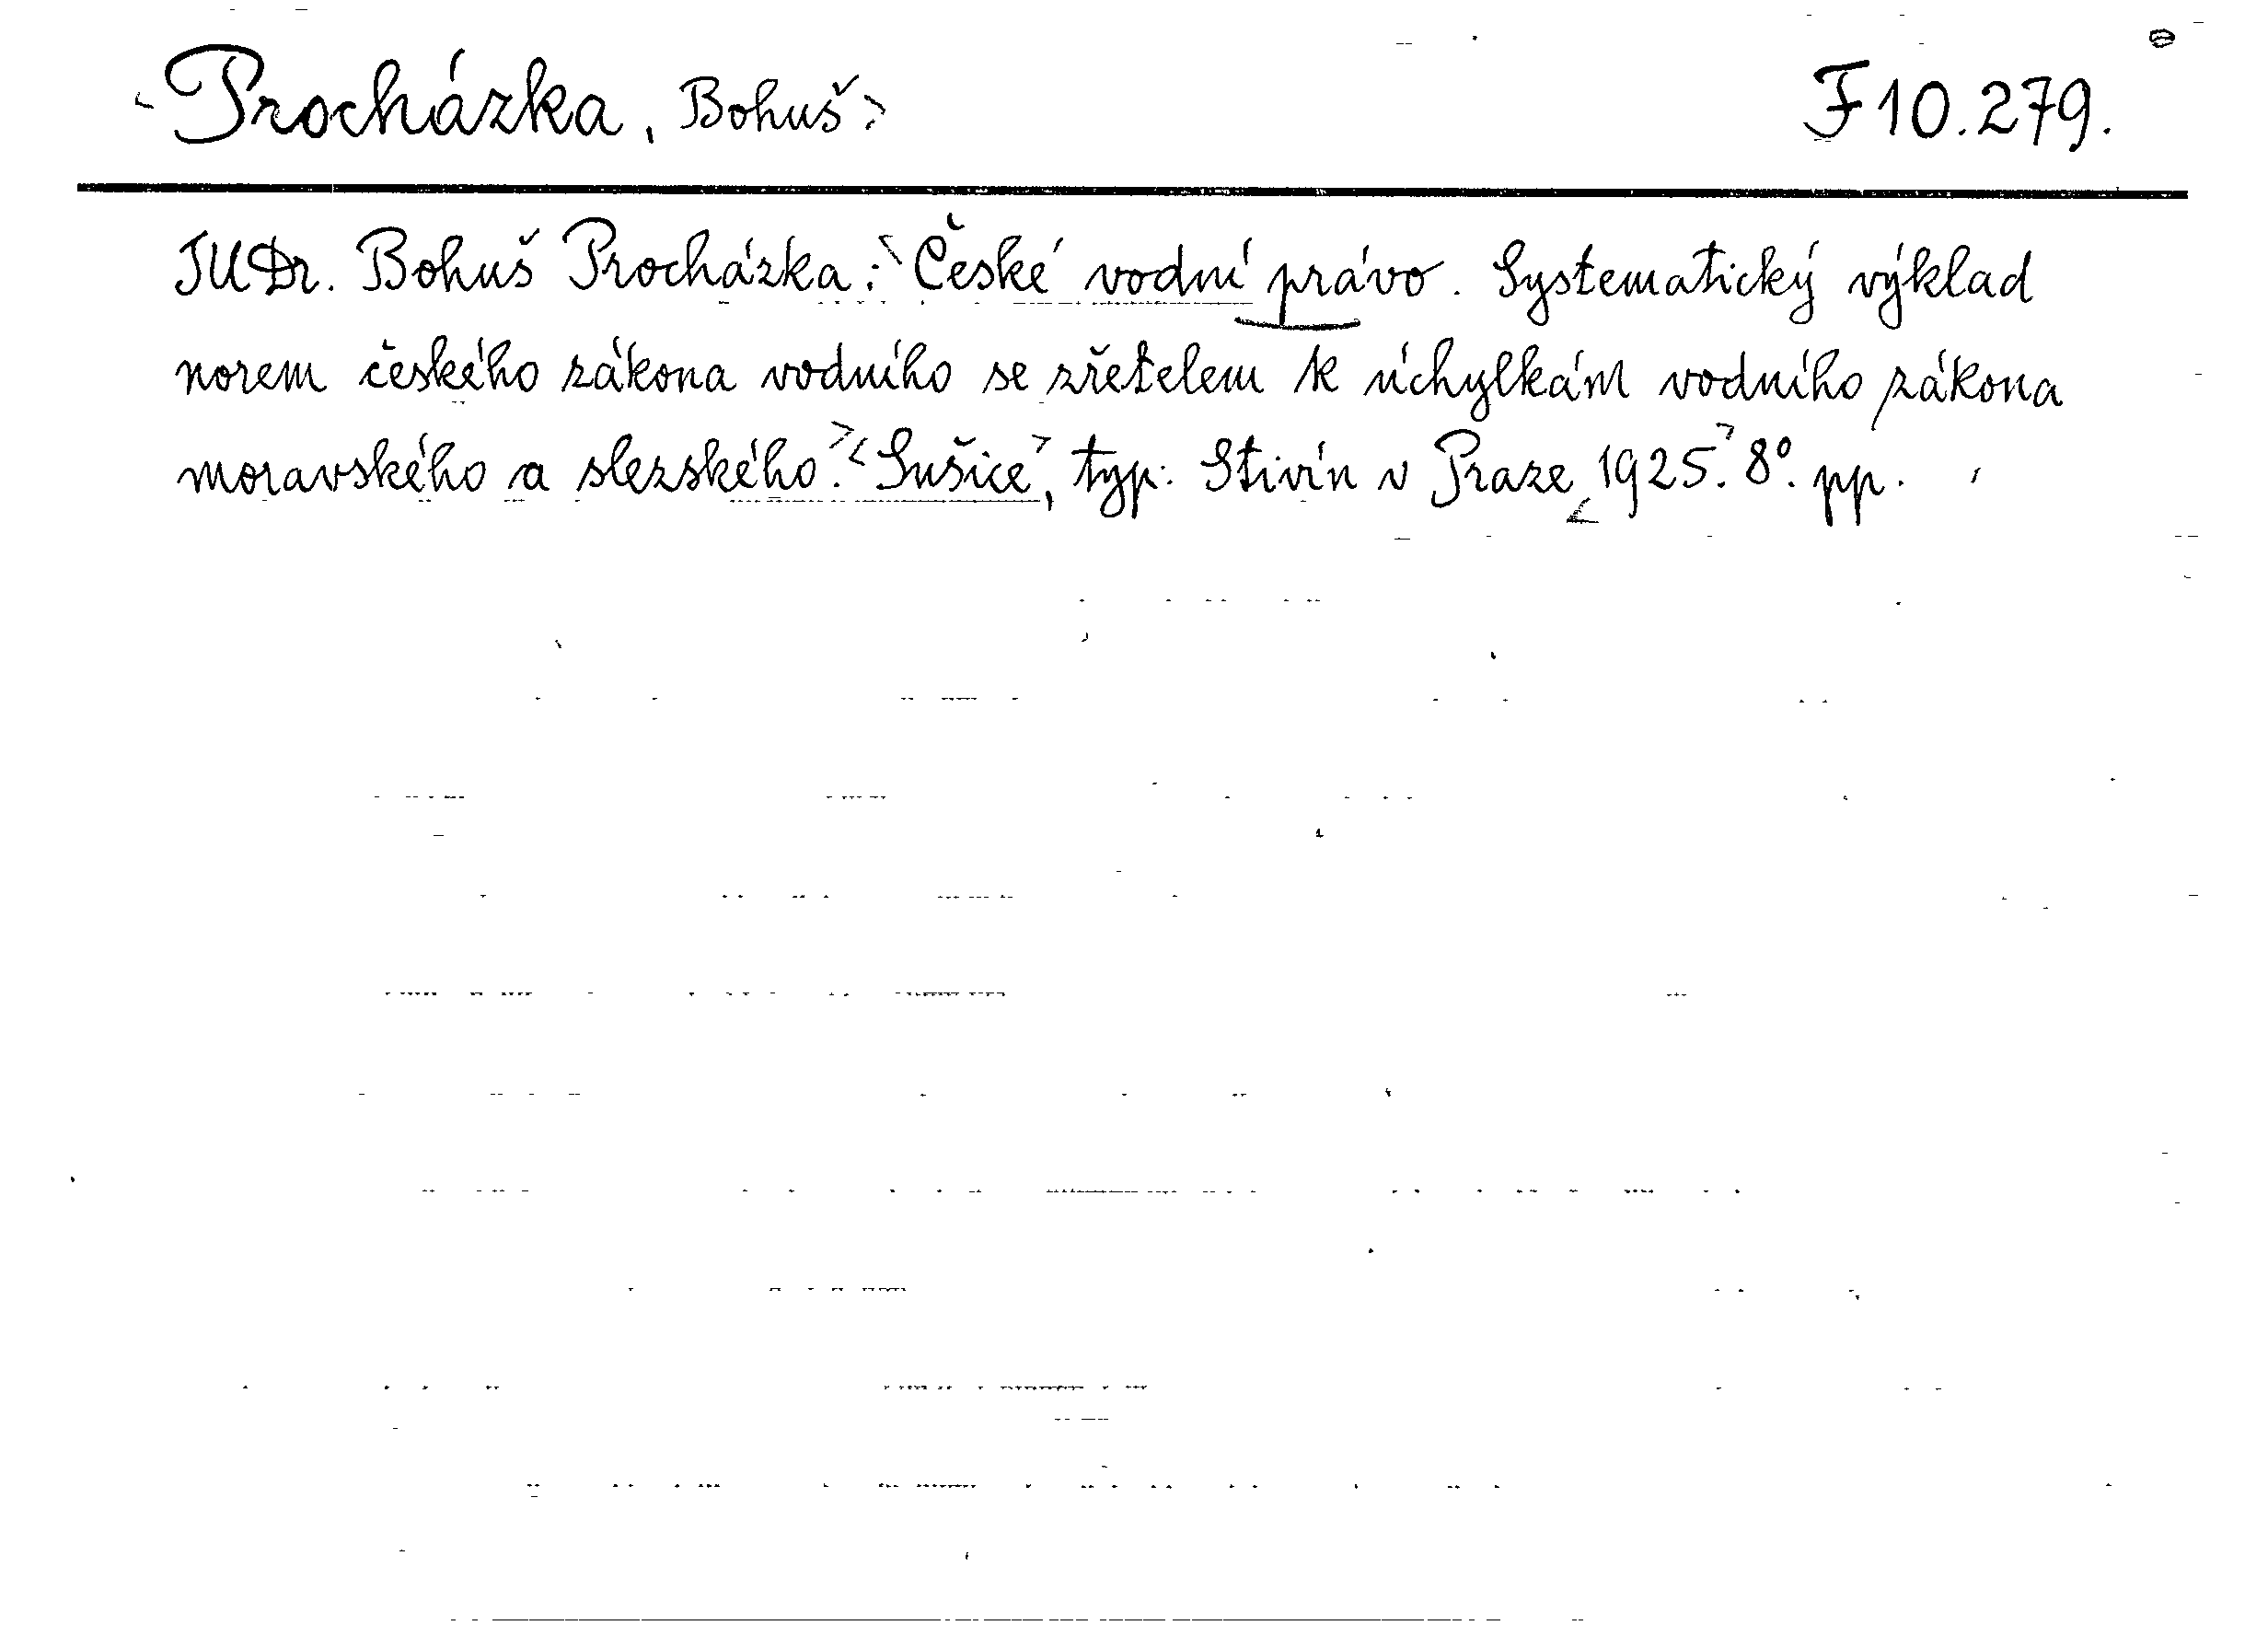 <Procházka, Bohuš> F 10.279.
JUDr. Bohuš Procházka: <České vodní právo. Systematický výklad
norem českého zákona vodního se zřetelem k úchylkám vodního zákona
moravského a slezského.> <Sušice>, typ: Stivín v Praze <1925.> 8°. pp.